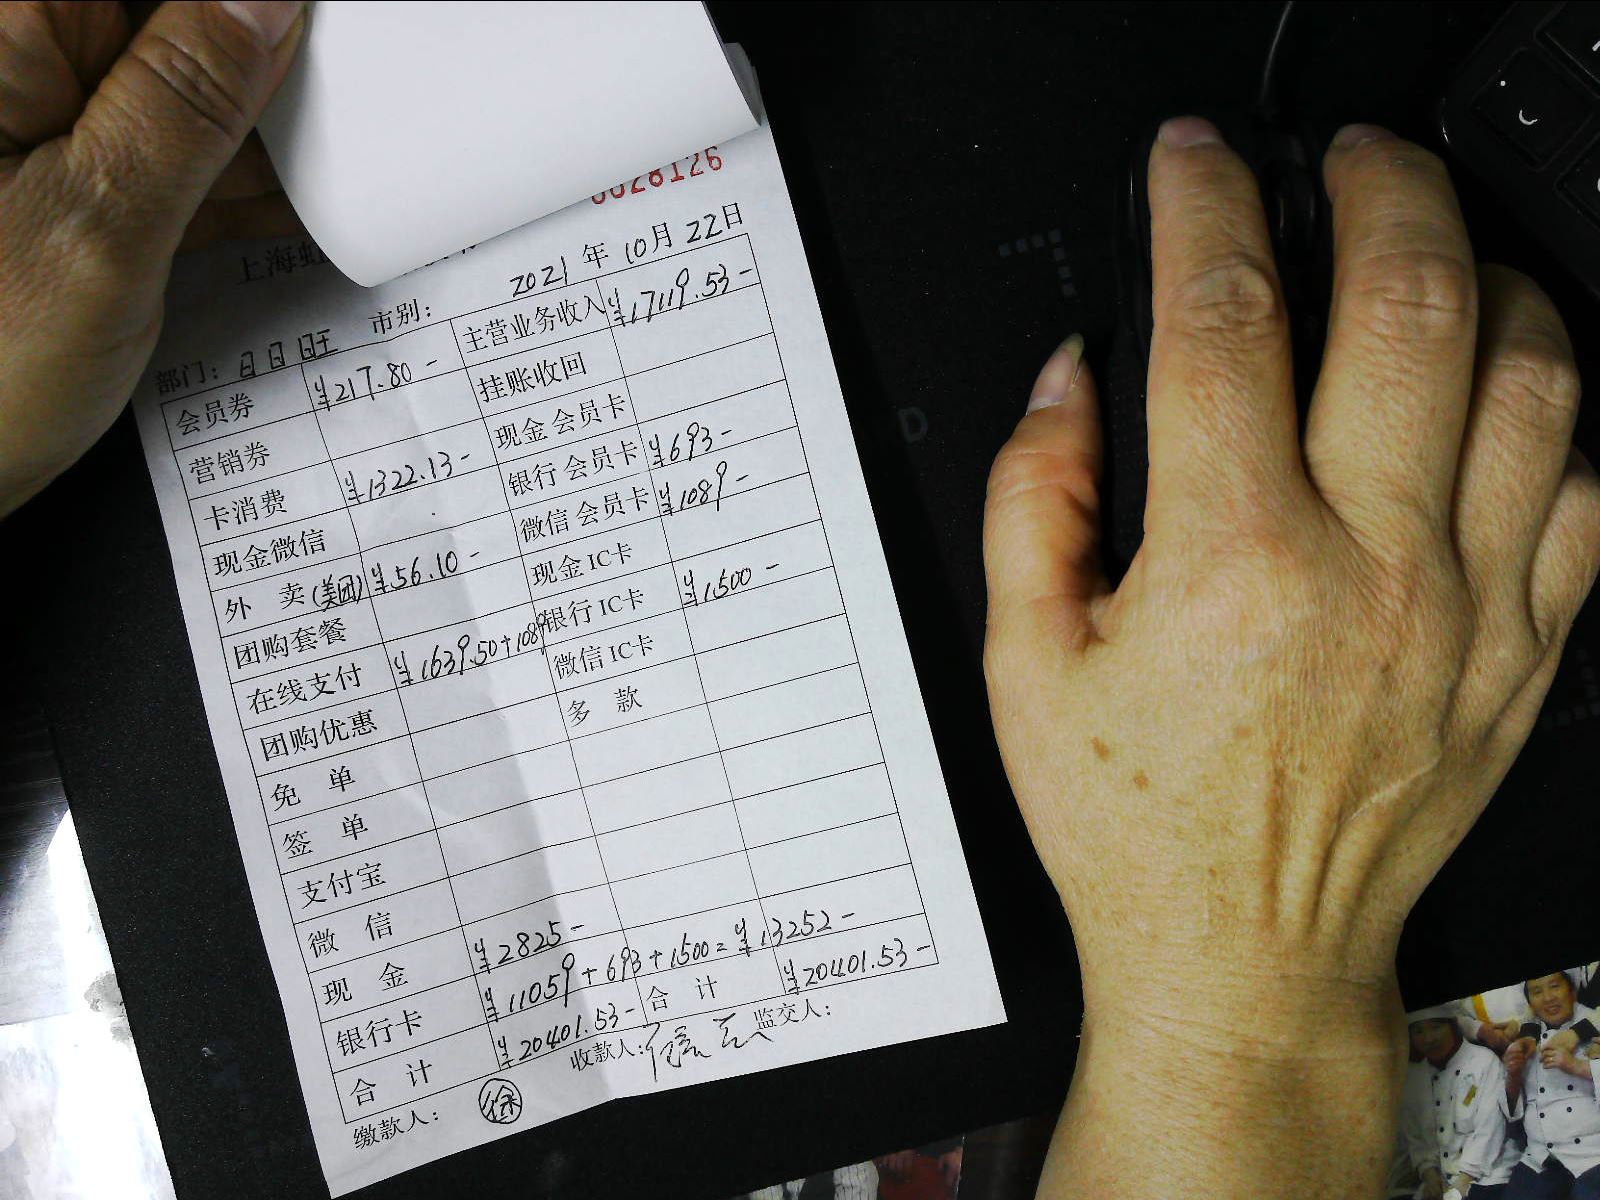 0028126
上海虹
2021年10月22日
部门：日日旺 市别：
会员券 ¥217.80- 主营业务收入 ¥17119.53-
营销券 挂账收回
卡消费 ¥1322.13- 现金会员卡
现金微信 银行会员卡 ¥693-
外 卖(美团) ¥56.10- 微信会员卡 ¥1089-
团购套餐 现金IC卡
在线支付 ¥1639.50+1089 银行IC卡 ¥1500-
团购优惠 微信IC卡
免 单 多 款
签 单
支付宝
微 信
现 金 ¥2825-
银行卡 ¥11059+693+1500=¥13252-
合 计 ¥20401.53- 合 计 ¥20401.53-
缴款人：徐 收款人： 监交人：